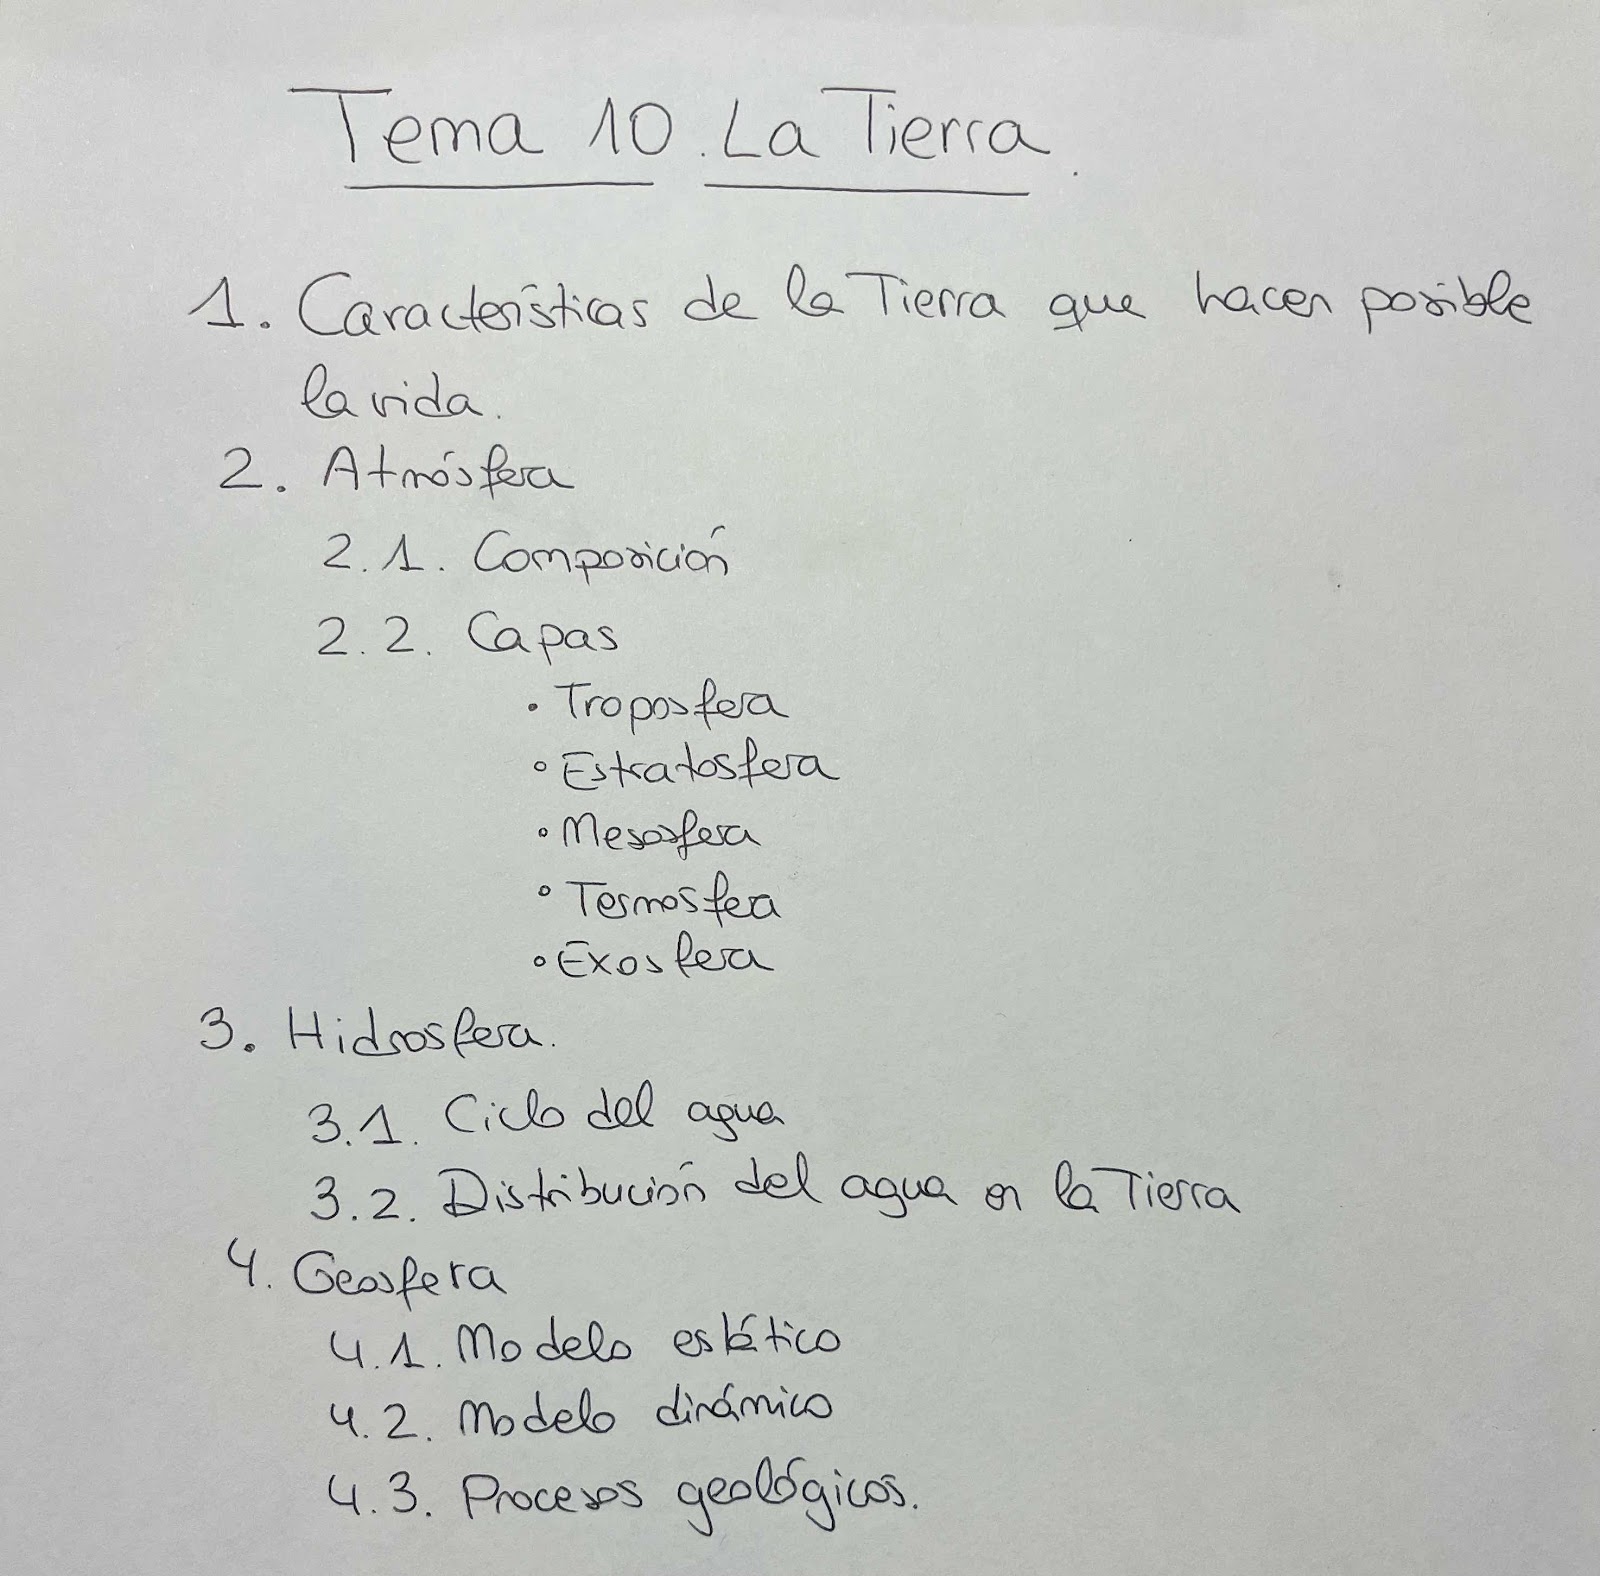 Tema 10. La Tierra.
1. Características de la Tierra que hacen posible
la vida.
2. Atmósfera
2.1. Composición
2.2. Capas
• Troposfera
• Estratosfera
• Mesosfera
• Termosfera
• Exosfera
3. Hidrosfera.
3.1. Ciclo del agua
3.2. Distribución del agua en la Tierra
4. Geosfera
4.1. Modelo estático
4.2. Modelo dinámico
4.3. Procesos geológicos.